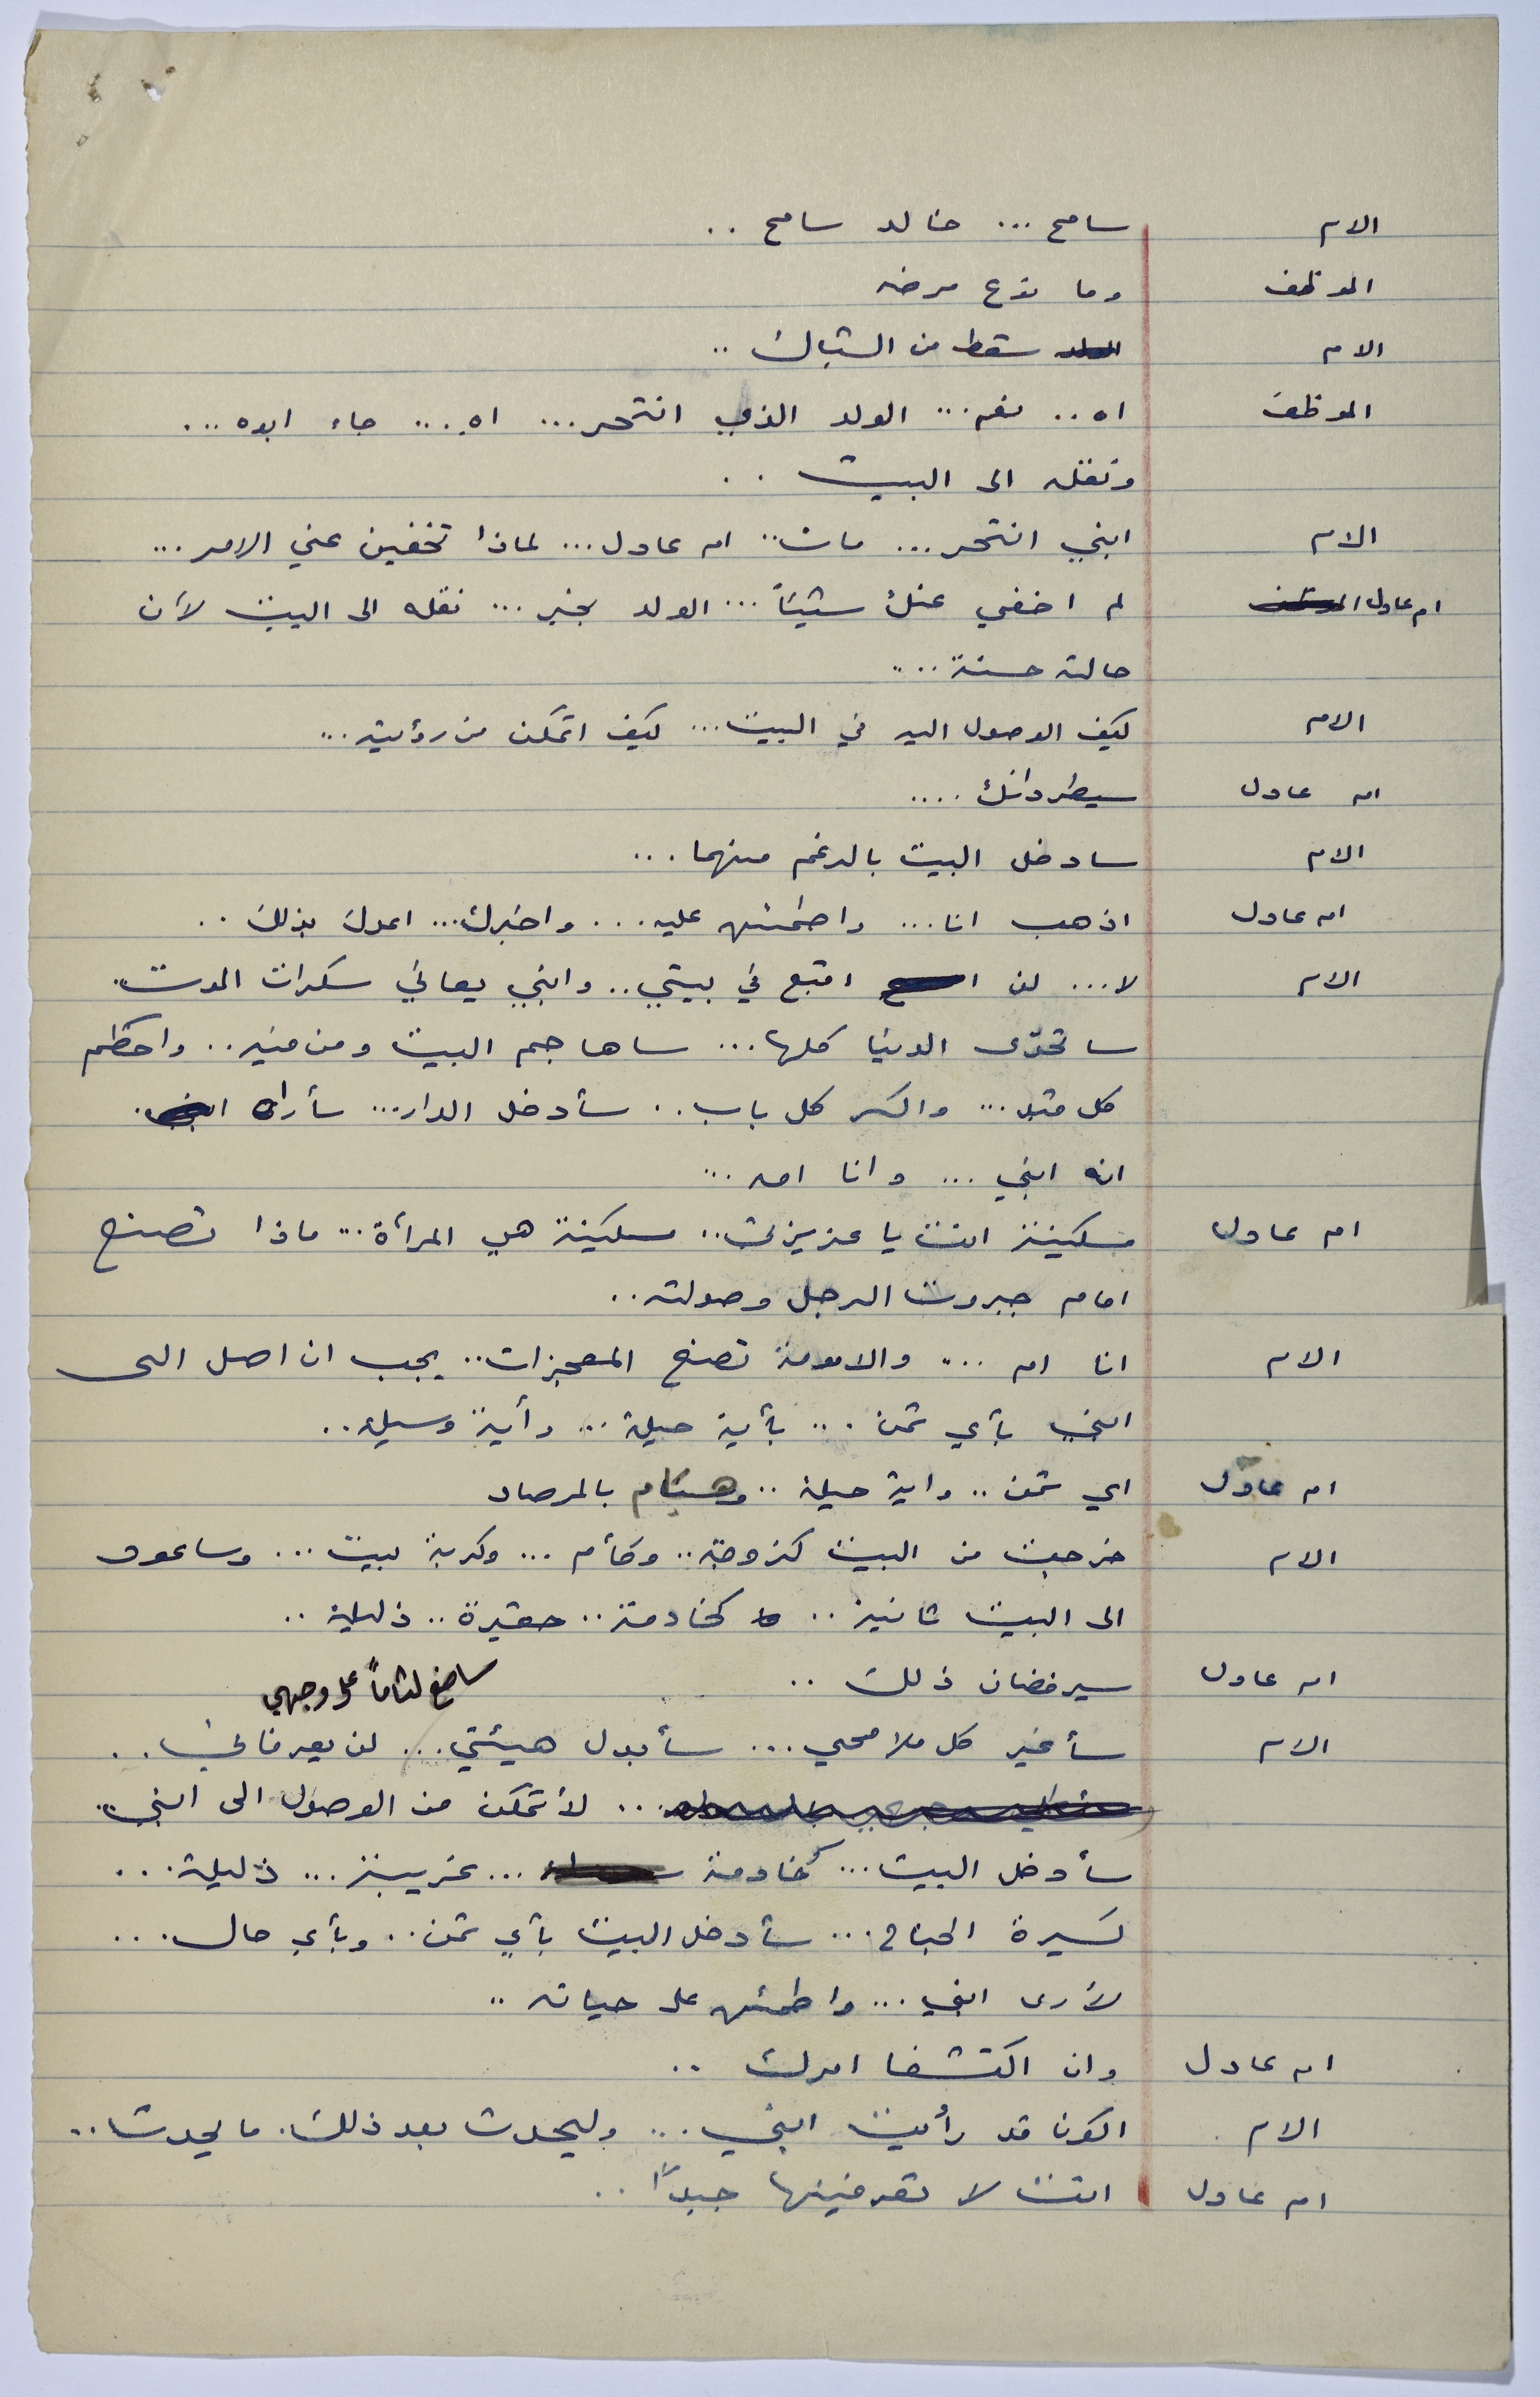 الام سامح ... خالد سامح ..
الموظف وما نوع مرضه
الام سقط من الشباك ..
الموظف اه .. نعم ... الولد الذي انتحر ... اه ... جاء ابوه ...
ونقله الى البيت ..
الام ابني انتحر ... مات .. ام عادل ... لماذا تخفين عني الامر ...
ام عادل لم اخفي عنك شيئاً ... الولد بخير ... نقله الى البيت لأن
حالته حسنة ...
الام كيف الوصول اليه في البيت ... كيف اتمكن من رؤيته ...
ام عادل سيطردانك ....
الام سادخل البيت بالرغم منهما ...
ام عادل اذهب انا ... واطمئن عليه ... واخبرك ... اعدك بذلك ..
الام لا ... لن اقبع في بيتي .. وابني يعاني سكرات الموت ..
ساتحدّى الدنيا كلها ... ساهاجم البيت ومن فيه .. واحطم
كل قيد ... واكسر كل باب .. سأدخل الدار ... سأراه
انه ابني ... وانا امه ...
ام عادل مسكينة انت يا عزيزتي .. مسكينة هي المرأة ... ماذا تصنع
امام جبروت الرجل وصولته ..
الام انا ام ... والامومة تصنع المعجزات .. يجب ان اصل الى
ابني بأي ثمن ... بأية حيلة ... وأية وسيلة ..
ام عادل اي ثمن .. واية حيلة .. وهيام بالمرصاد
الام خرجت من البيت كزوجة .. وكأم ... وكربة بيت ... وساعود
الى البيت ثانية .. كخادمة .. حقيرة .. ذليلة ..
ام عادل سيرفضان ذلك ..
ساضع لثاماً على وجهي
الام سأغير كل ملامحي ... سأبدل هيئتي ... لن يعرفاني ..
... لأتمكن من الوصول الى ابني ..
سأدخل البيت ... كخادمة ... غريبة ... ذليلة ...
كسيرة الجناح ... سأدخل البيت بأي ثمن .. وبأي حال ...
لأرى ابني ... واطمئن على حياته ..
ام عادل وان اكتشفا امرك ..
الام اكون قد رأيت ابني ... وليحدث بعد ذلك ما يحدث ..
ام عادل انت لا تعرفينها جيداً ..